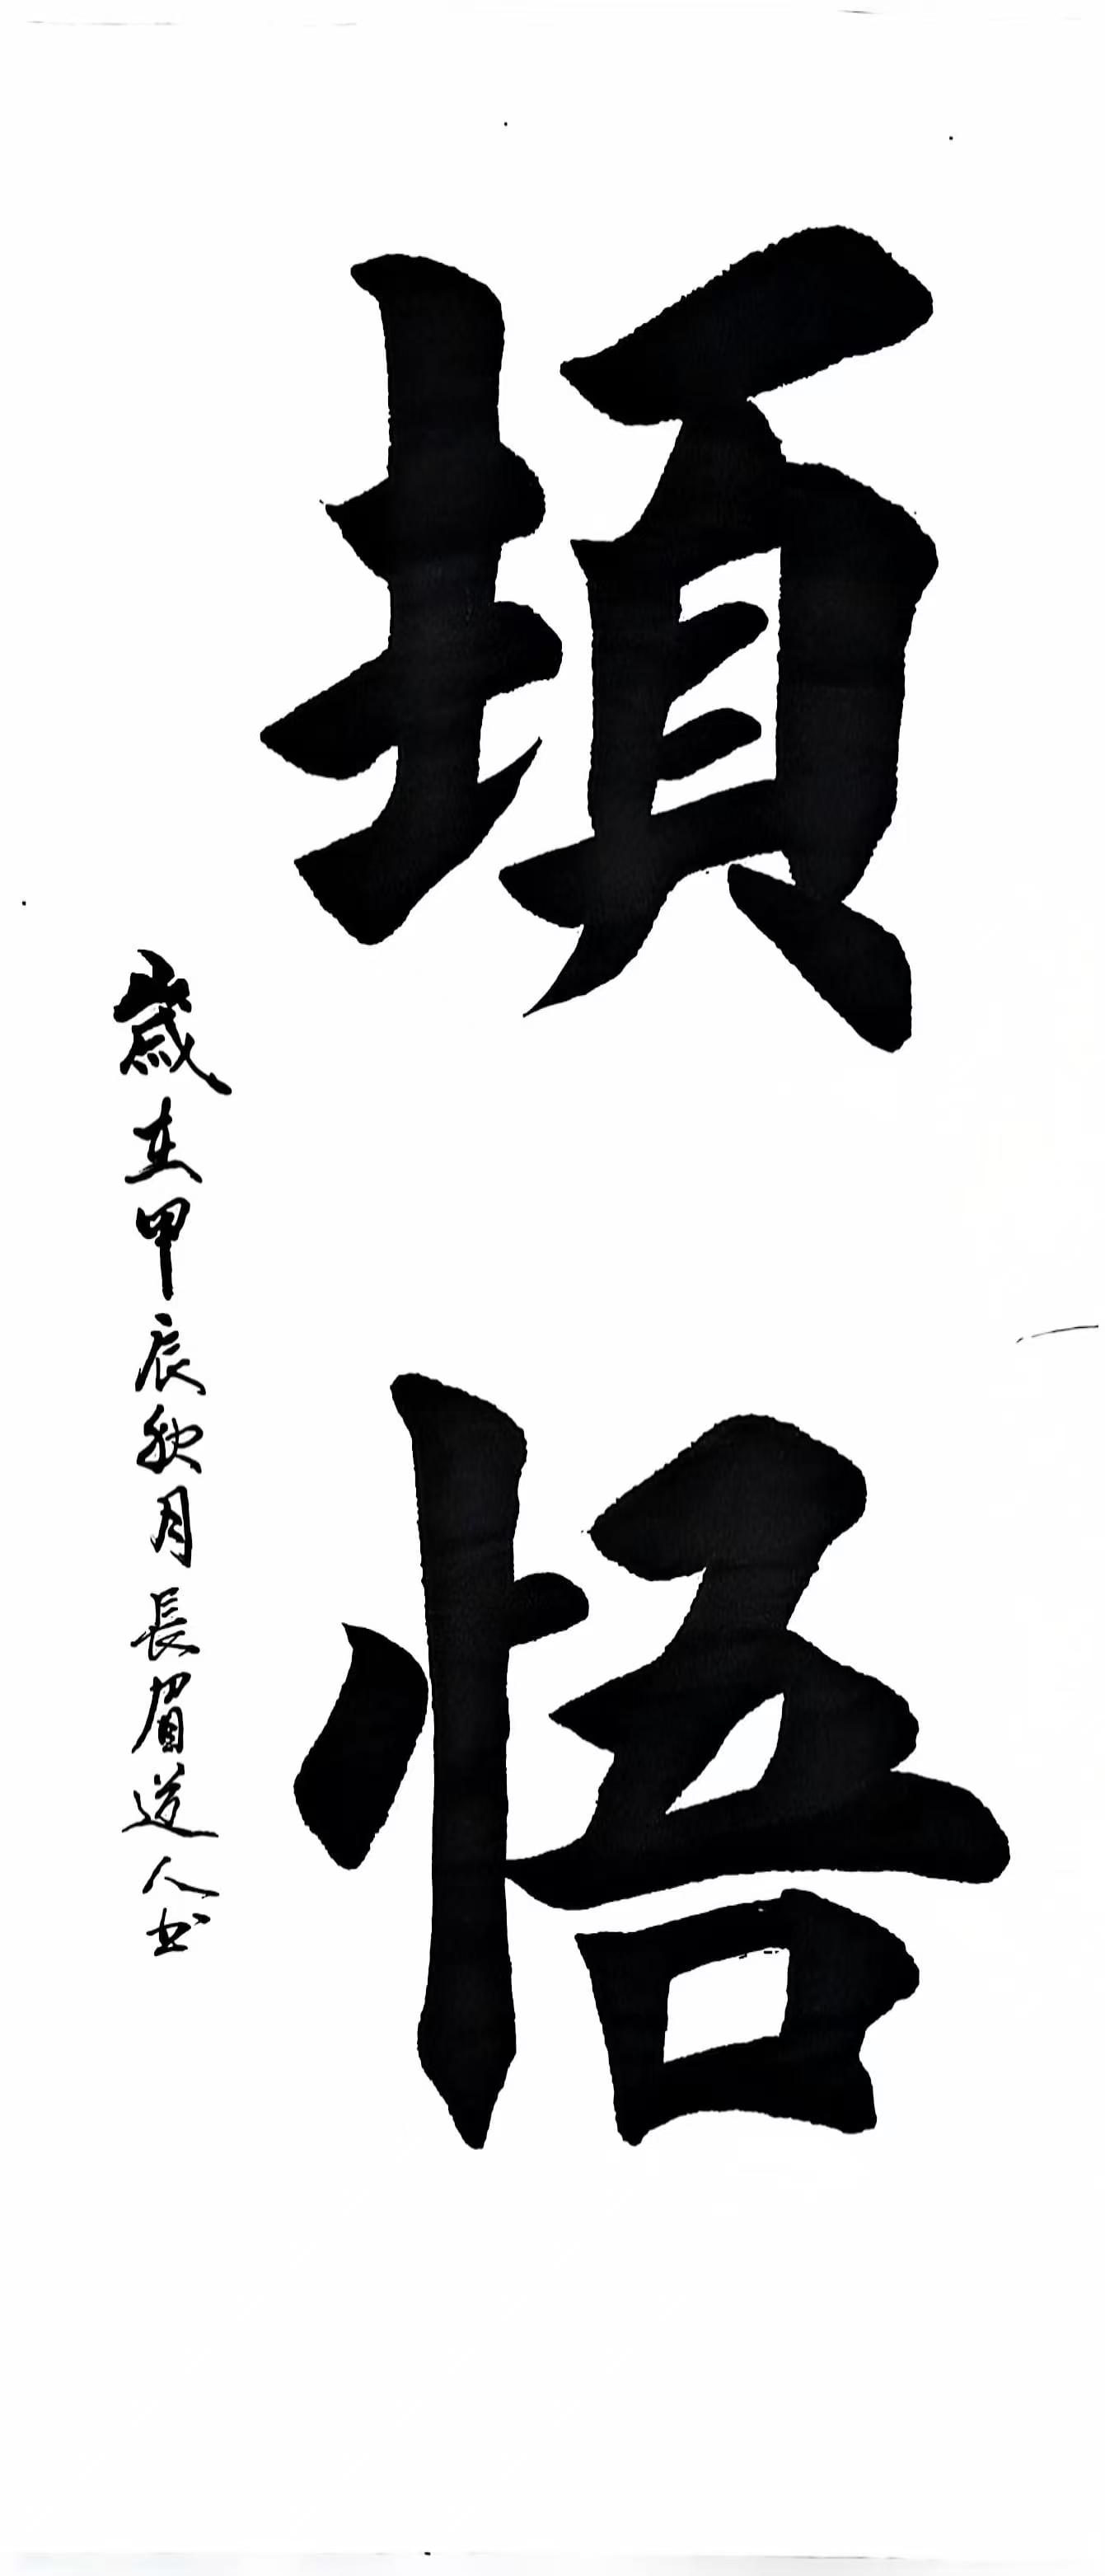 頓悟
歲在甲辰秋月長眉道人书